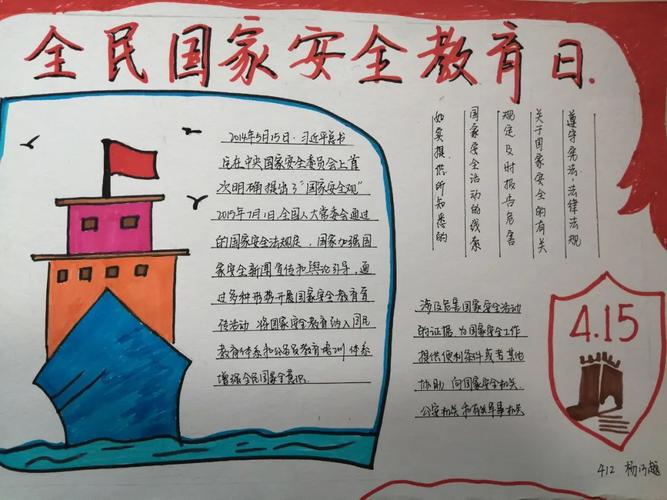 全民国家安全教育日.
2014年5月15日.习近平总书
记在中央国家安全委员会上首
次明确提出了"国家安全观"
2015年7月1日全国人大常委会通过
的国家安全法规定.国家加强国
家安全新闻宣传和舆论引导,通
过多种形势开展国家安全教育宣
传活动.将国家安全教育纳入国民
教育体系和公务员教育培训体系
增强全民国家全意识.
遵守宪法.法律法规
关于国家安全的有关
规定及时报告危害
国家安全活动的线索
如实提供所知悉的
涉及危害国家安全活动
的证据.为国家安全工作
提供便利条件或者其他
协助.向国家安全机关.
公安机关和有关军事机关
4.15
412 杨